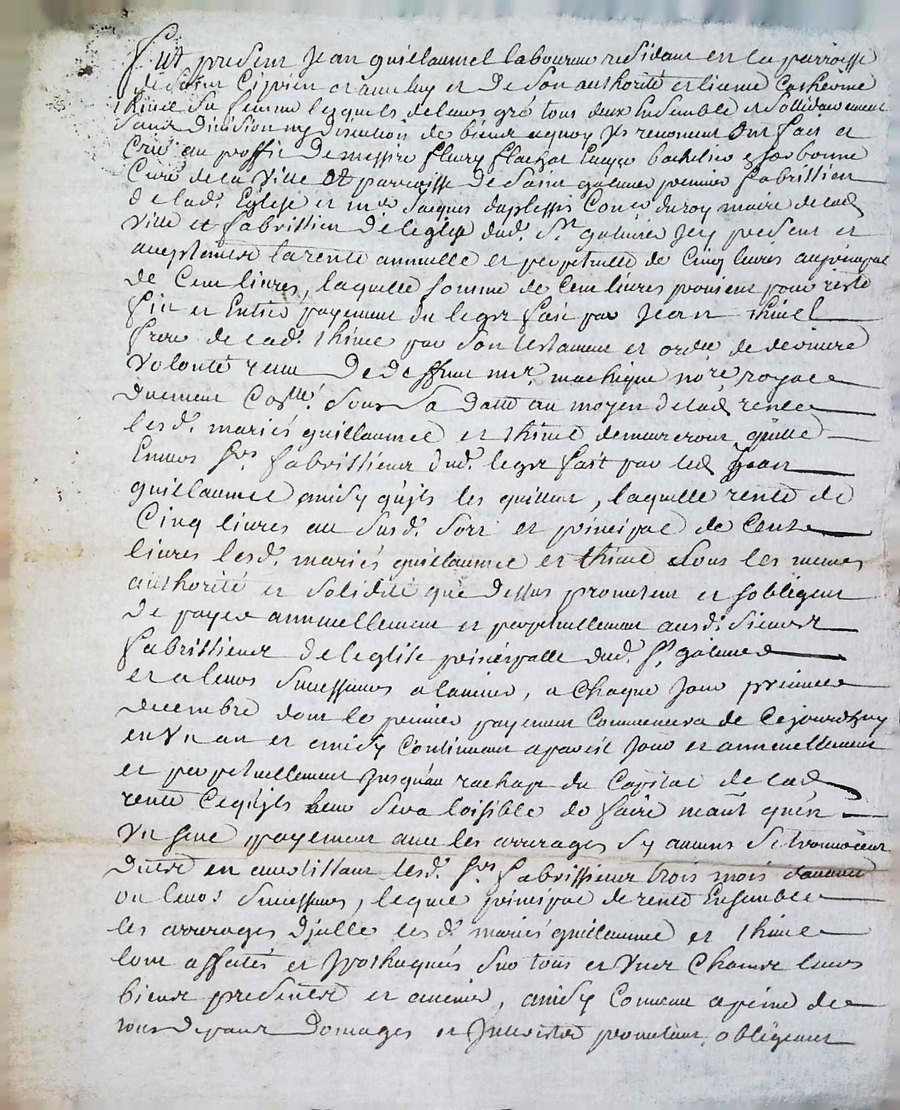 fut present Jean guillaumel laboureur residant en la parroisse
de Saint Cÿprien et avec luy et de son authorité etienne Catherine
thinel sa femme lesquels de leurs gré tous deux Ensemble et sollidairement
sans Division ny discution de biens a quoy ils renoncent ont fait et
Créé au proffit de messire fleury flachat Encyé bachelier de sorbonne
Curé de la ville et parroisse de Saint galmier premier fabrissien
de lad. Eglise et mre Jacques duplessis Coner du roy maire de lad
ville et fabrissien de leglise dud. St galmier Icy present et
acceptentst la rente annuelle et perpetuelle de Cinq livres au principal
de Cent livres, laquelle somme de Cent livres provient pour reste
fin et Entier payement du legs fait par Jean thinel
frere de lad. thinel par son testament et ordre de derniere
volonté reçu de deffunt mr. nore royal
duement Collé. sous sa datte au moyen de lad rente
lesd. mariés guillaumel et thinel demeureront quitte
Envers srs. fabrissiens dud. legs fait par led Jean
guillaumel ainsy qu'ils les quittent, laquelle rente de
Cinq livres au susd. sort et principal de Cent
livres lesd. mariés guillaumel et thinel sous les memes
authorité et solidité que dessus promettent et sobligent
de payer annuellement et perpetuellement ausd. sieurs
fabrissiens de leglise principalle dud. St galmier
et a leurs successeurs a lavenir, a Chaque Jour premier
decembre dont le premier payement Commencera de Cejourdhuy
en Un an et ainsy Continuant a pareil Jour et annuellement
et perpetuellement Jusqu'au rachapt du Capital de lad
rente Cequ'ils leur sera loisible de faire quen
Un seul payement avec les arrerages sy aucuns se trouvoient
Dues en avertissant lesd. srs fabrissiens trois mois davance
ou leurs successeurs, lequel principal de rente Ensemble
les arrerages d'jcelle lesd. mariés guillaumel et thinel
lont affectés et Jpothequés sur tous et Uns Chacun leurs
biens presents et avenir, ainsy Convenu a peine de
tous depens Domages et Interets promettant obligeant